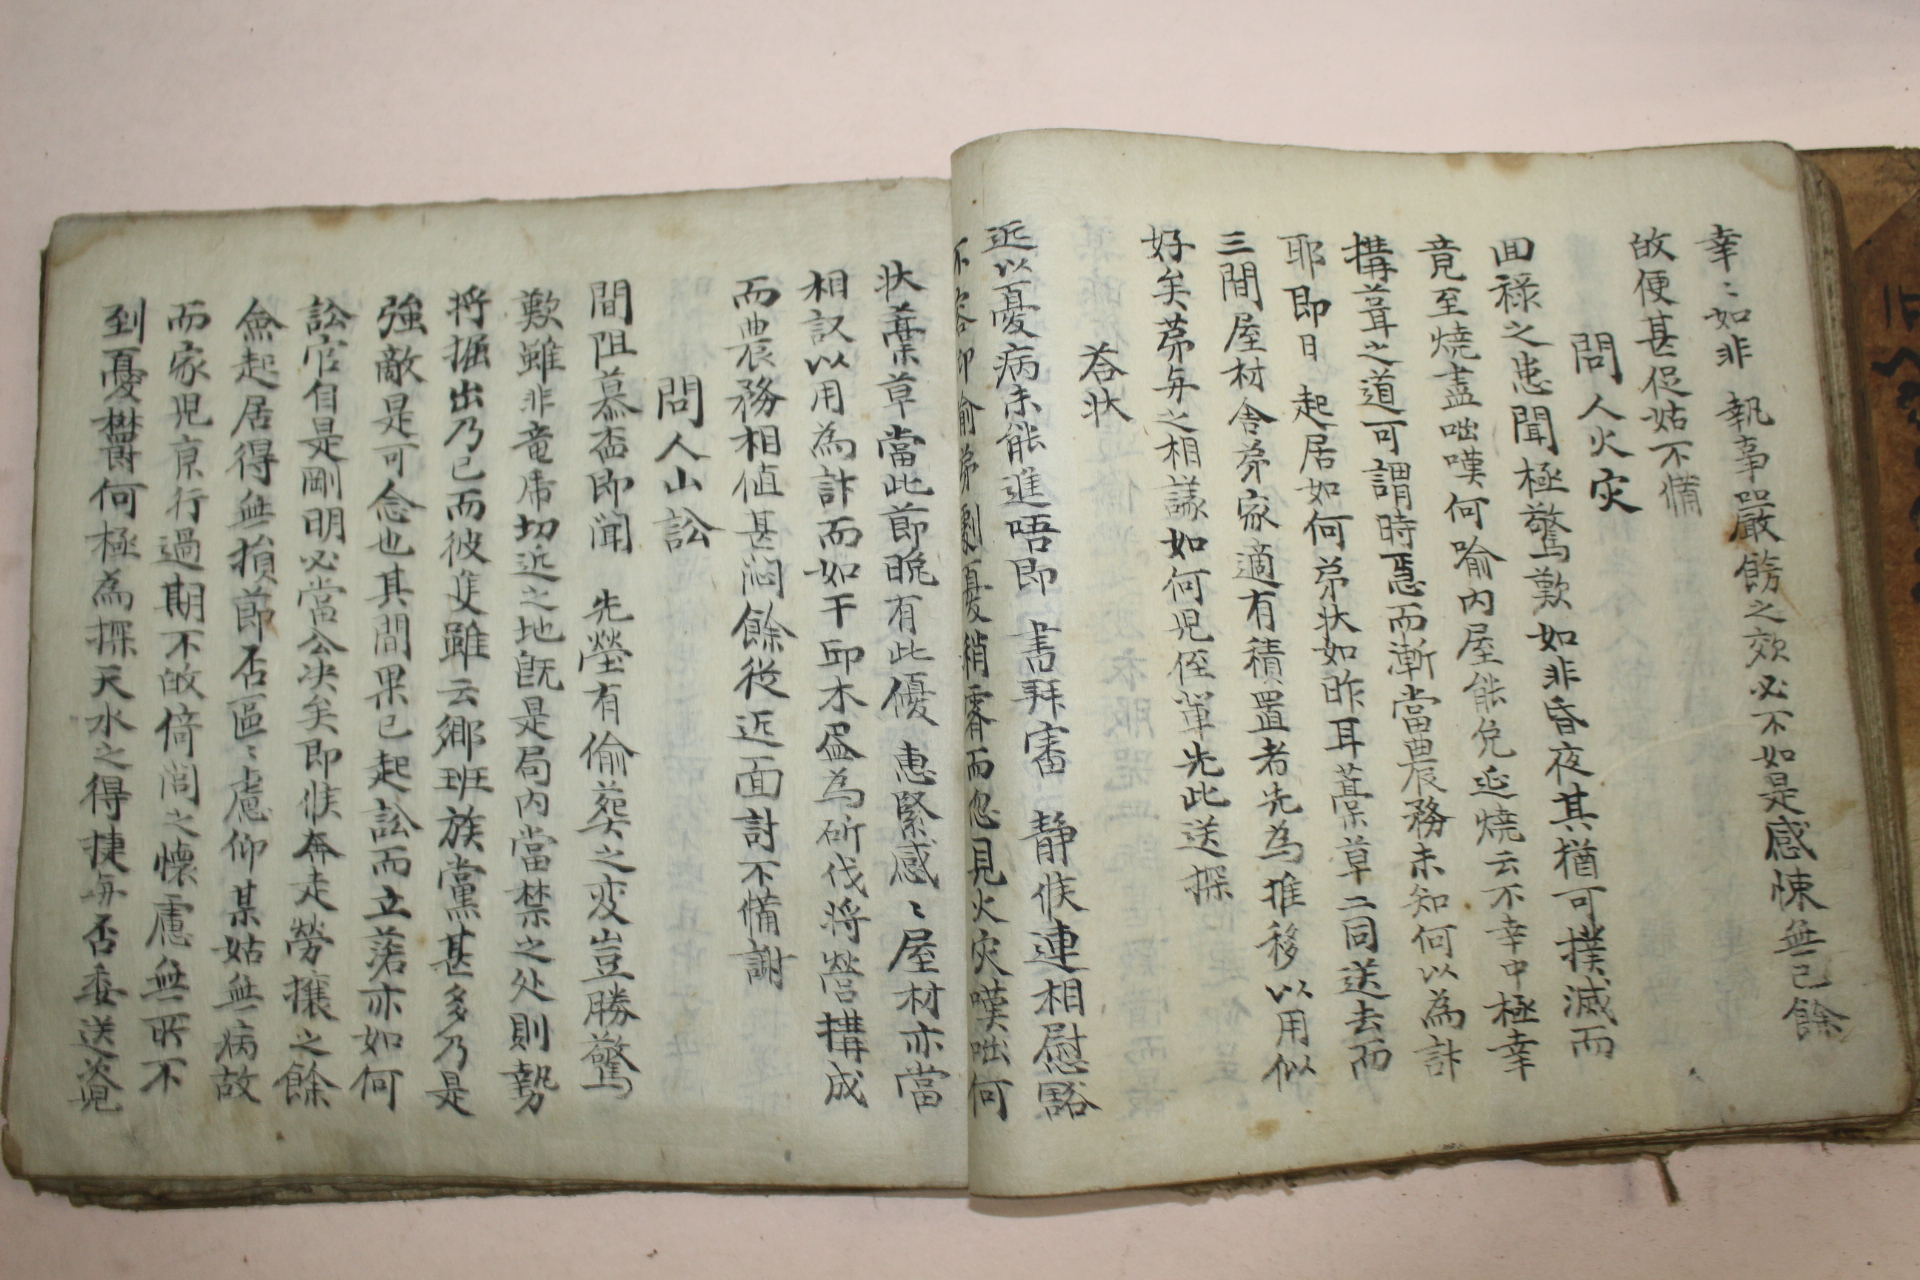 幸〻如非 執事嚴飭之效必不如是感悚無已餘
故便甚促姑不備
問人火灾
囬祿之患聞極驚歎如非昏夜其猶可撲滅而
竟至燒盡咄嘆何喻內屋能免延燒云不幸中極幸
搆葺之道可謂時急而漸當農務未知何以為計
耶即日 起居如何弟狀如昨耳藁草二同送去而
三間屋材舍弟家適有積置者先為推移以用似
好矣苐与之相議如何児侄軰先此送探
荅狀
近以憂病未能進唔即 書拜審 静候連相慰豁
不容仰喻弟劇憂稍霽而忽見火灾嘆咄何
狀藁草當此節晩有此優 惠緊感〻屋材亦當
相議以用為計而如干邱木盈為斫伐将營搆成
而農務相値甚悶餘從近面討不備謝
問人山訟
間阻慕悵即聞 先塋有偷葬之变豈勝驚
歎雖非竜席切近之地旣是局内當禁之处則勢
将掘出乃已而彼隻雖云鄉班族黨甚多乃是
強敵是可念也其間果已起訟而立落亦如何
訟官自是剛明必當公决矣即候奔走勞攘之餘
僉起居得無損節否區〻慮仰某姑無病故
而家児京行過期不故倚閭之懷慮無所不
到憂欝何極為探天水之得捷与否委送迷児